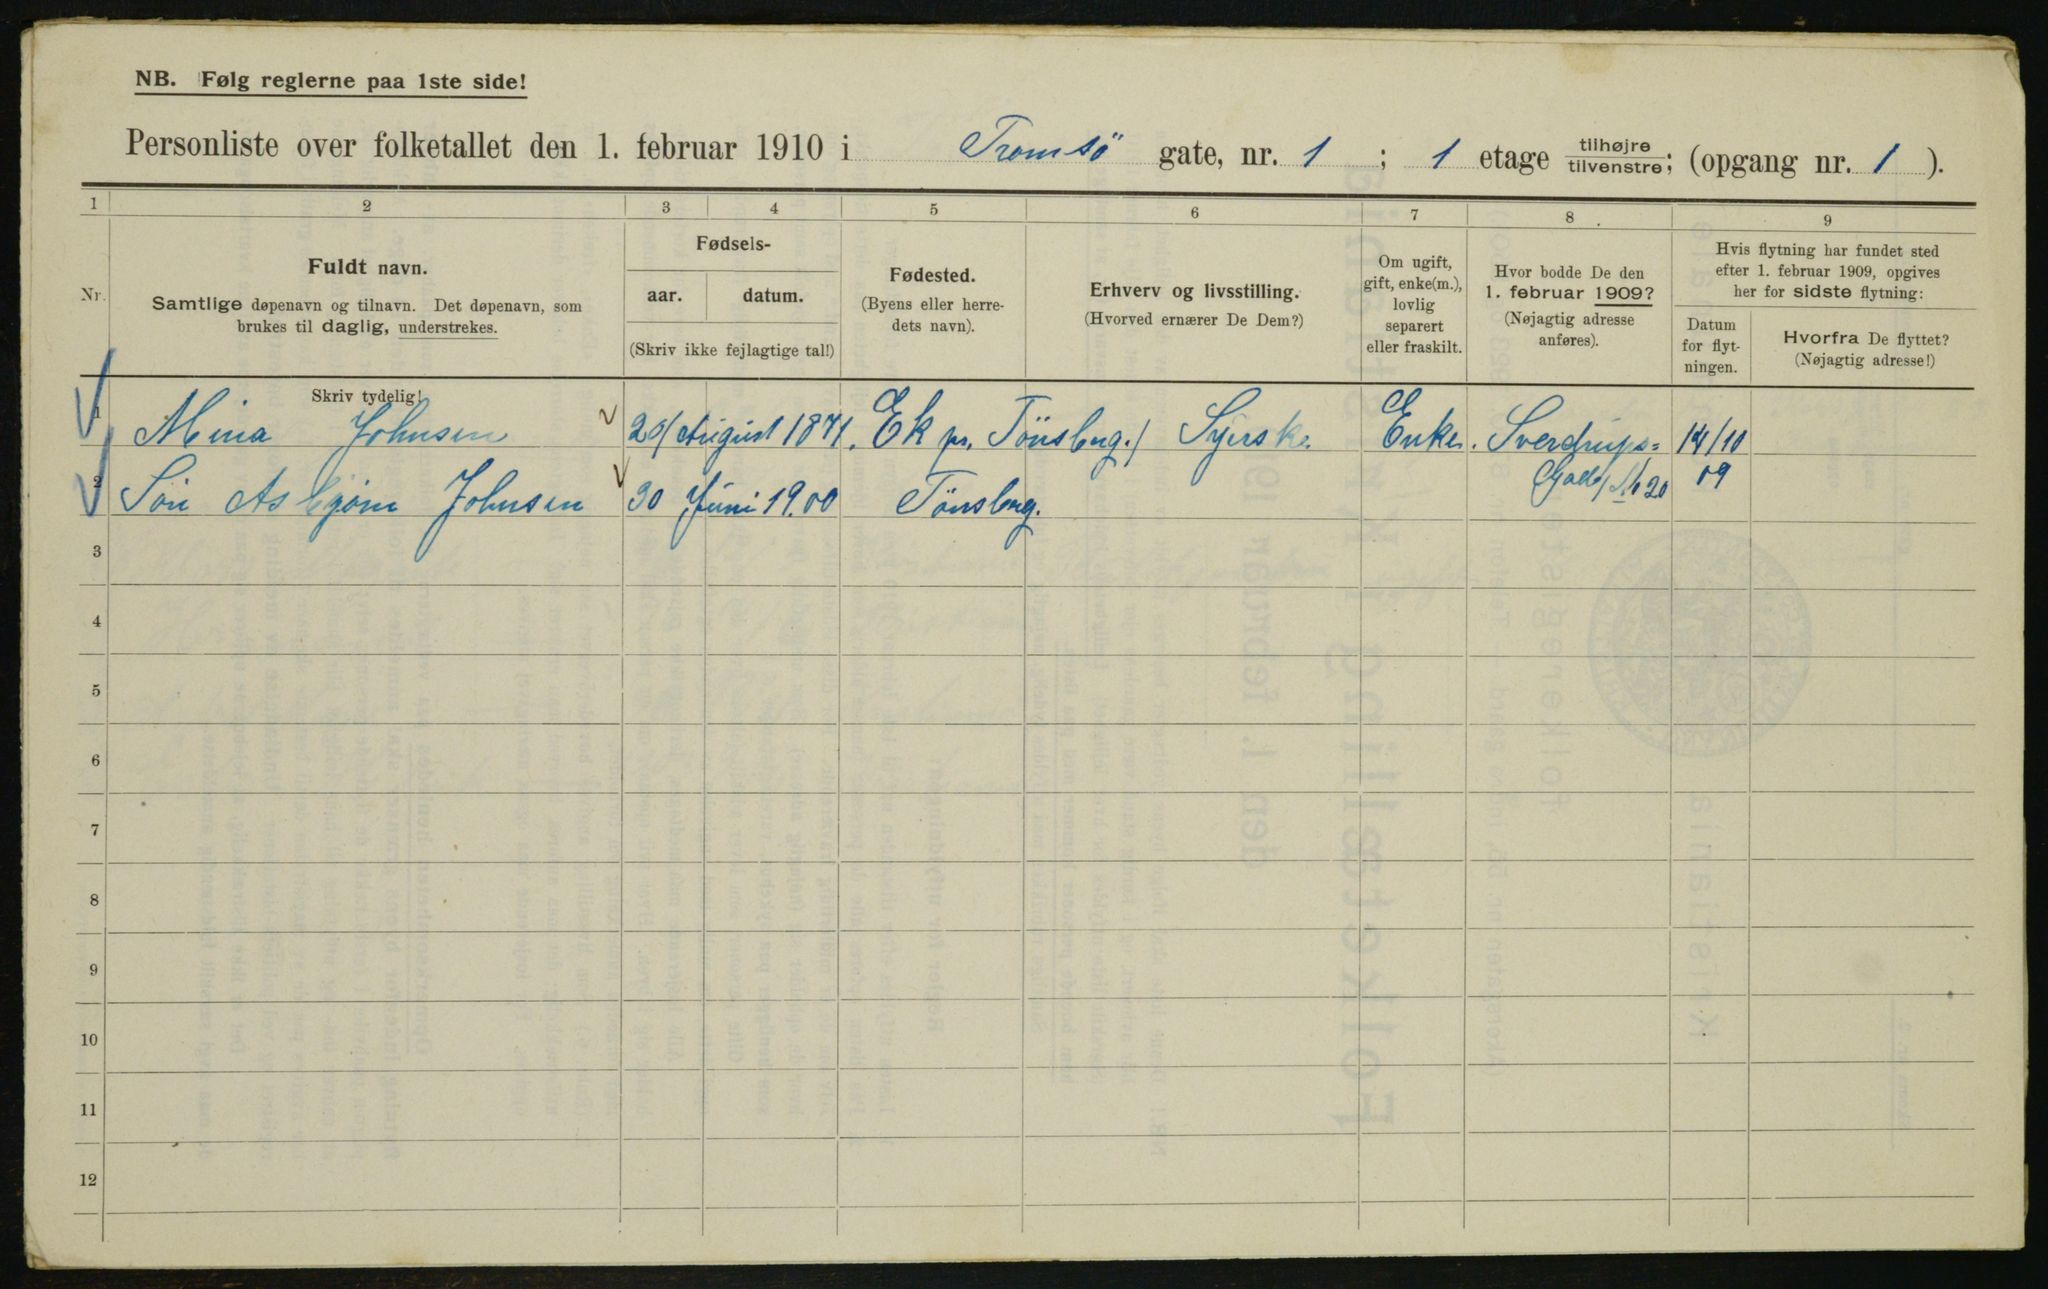 NB. Følg reglerne paa 1ste side!
Personliste over folketallet den 1. februar 1910 i Tromsö gate, nr. 1 ; 1 etage tilhøjre tilvenstre; (opgang nr. 1 ).
1 2 3 4 5 6 7 8 9
Nr.
Fuldt navn.
Samtlige døpenavn og tilnavn. Det døpenavn, som
brukes til daglig, understrekes.
Skriv tydelig!
Fødsels-
aar. datum.
(Skriv ikke fejlagtige tal!)
Fødested.
(Byens eller herre-
dets navn).
Erhverv og livsstilling.
(Hvorved ernærer De Dem?)
Om ugift,
gift, enke(m.),
lovlig
separert
eller fraskilt.
Hvor bodde De den
1. februar 1909?
(Nøjagtig adresse
anføres).
Hvis flytning har fundet sted
efter 1. februar 1909, opgives
her for sidste flytning:
Datum
for flyt-
ningen.
Hvorfra De flyttet?
(Nøjagtig adresse!)
1 Mina Johnsen 20/August 1871. Ek pr. Tönsberg./ Syerske. Enke. Sverdrups= 14/10
Gade/ 20 09
2 Sön Asbjörn Johnsen 30 Juni 19.00 Tönsberg.
3
4
5
6
7
8
9
10
11
12